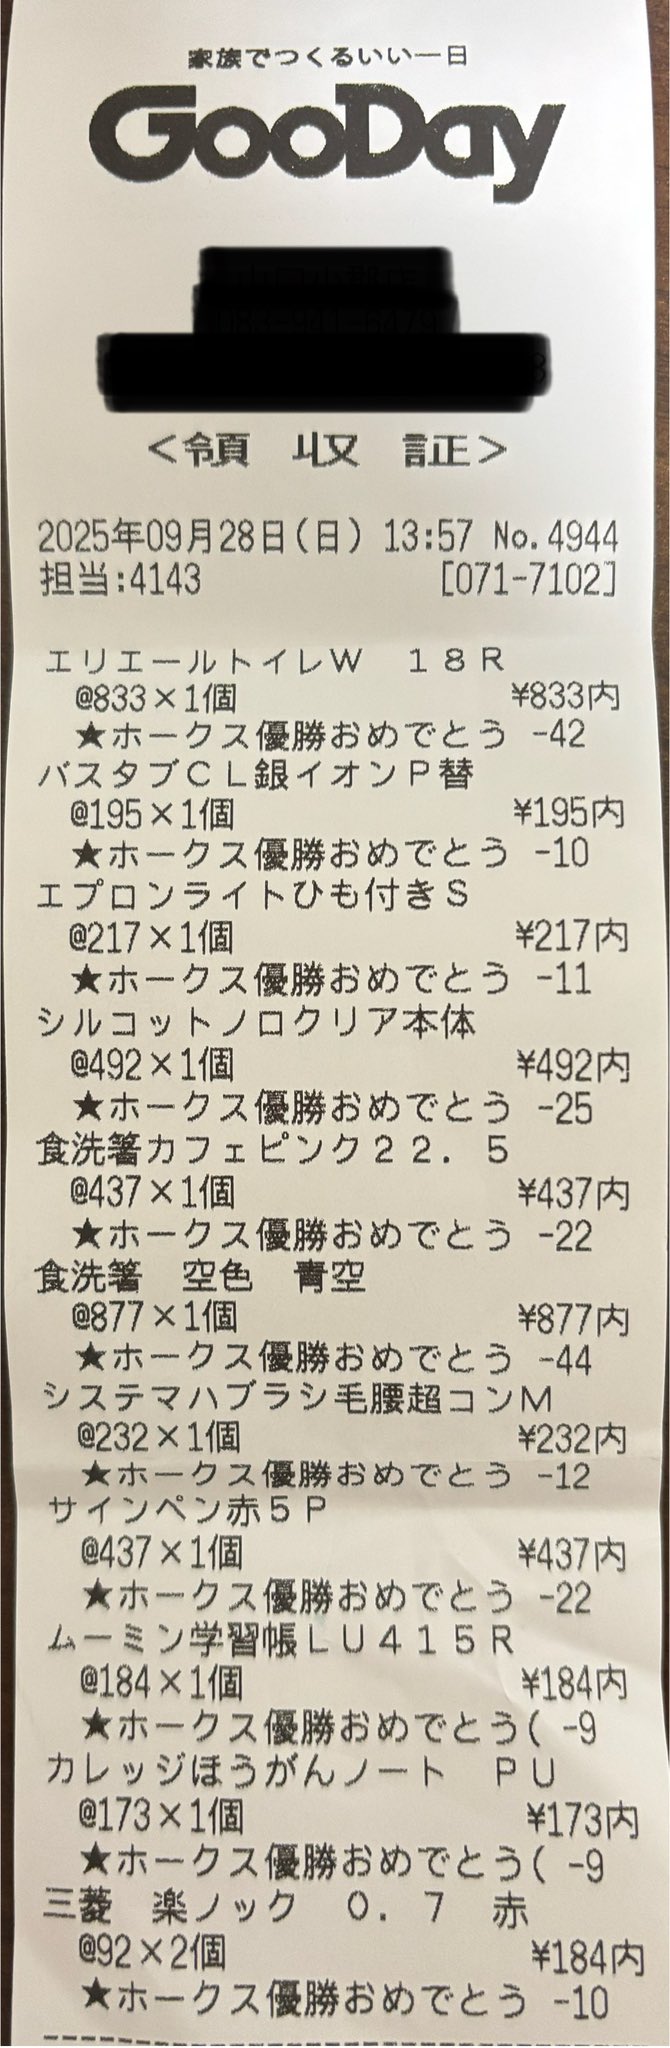 家族でつくるいい一日
GooDay
<領 収 証>
2025年09月28日(日) 13:57 No.4944
担当:4143 [071-7102]
エリエールトイレW 18R
@833×1個 ¥833内
★ホークス優勝おめでとう -42
バスタブCL銀イオンP替
@195×1個 ¥195内
★ホークス優勝おめでとう -10
エプロンライトひも付きS
@217×1個 ¥217内
★ホークス優勝おめでとう -11
シルコットノロクリア本体
@492×1個 ¥492内
★ホークス優勝おめでとう -25
食洗箸カフェピンク22.5
@437×1個 ¥437内
★ホークス優勝おめでとう -22
食洗箸 空色 青空
@877×1個 ¥877内
★ホークス優勝おめでとう -44
システマハブラシ毛腰超コンM
@232×1個 ¥232内
★ホークス優勝おめでとう -12
サインペン赤5P
@437×1個 ¥437内
★ホークス優勝おめでとう -22
ムーミン学習帳LU415R
@184×1個 ¥184内
★ホークス優勝おめでとう( -9
カレッジほうがんノート PU
@173×1個 ¥173内
★ホークス優勝おめでとう( -9
三菱 楽ノック 0.7 赤
@92×2個 ¥184内
★ホークス優勝おめでとう -10